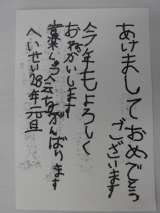 あけましておめでとう
ございます
今年もよろしく
おねがいします
がんばります
へいせい28年元旦